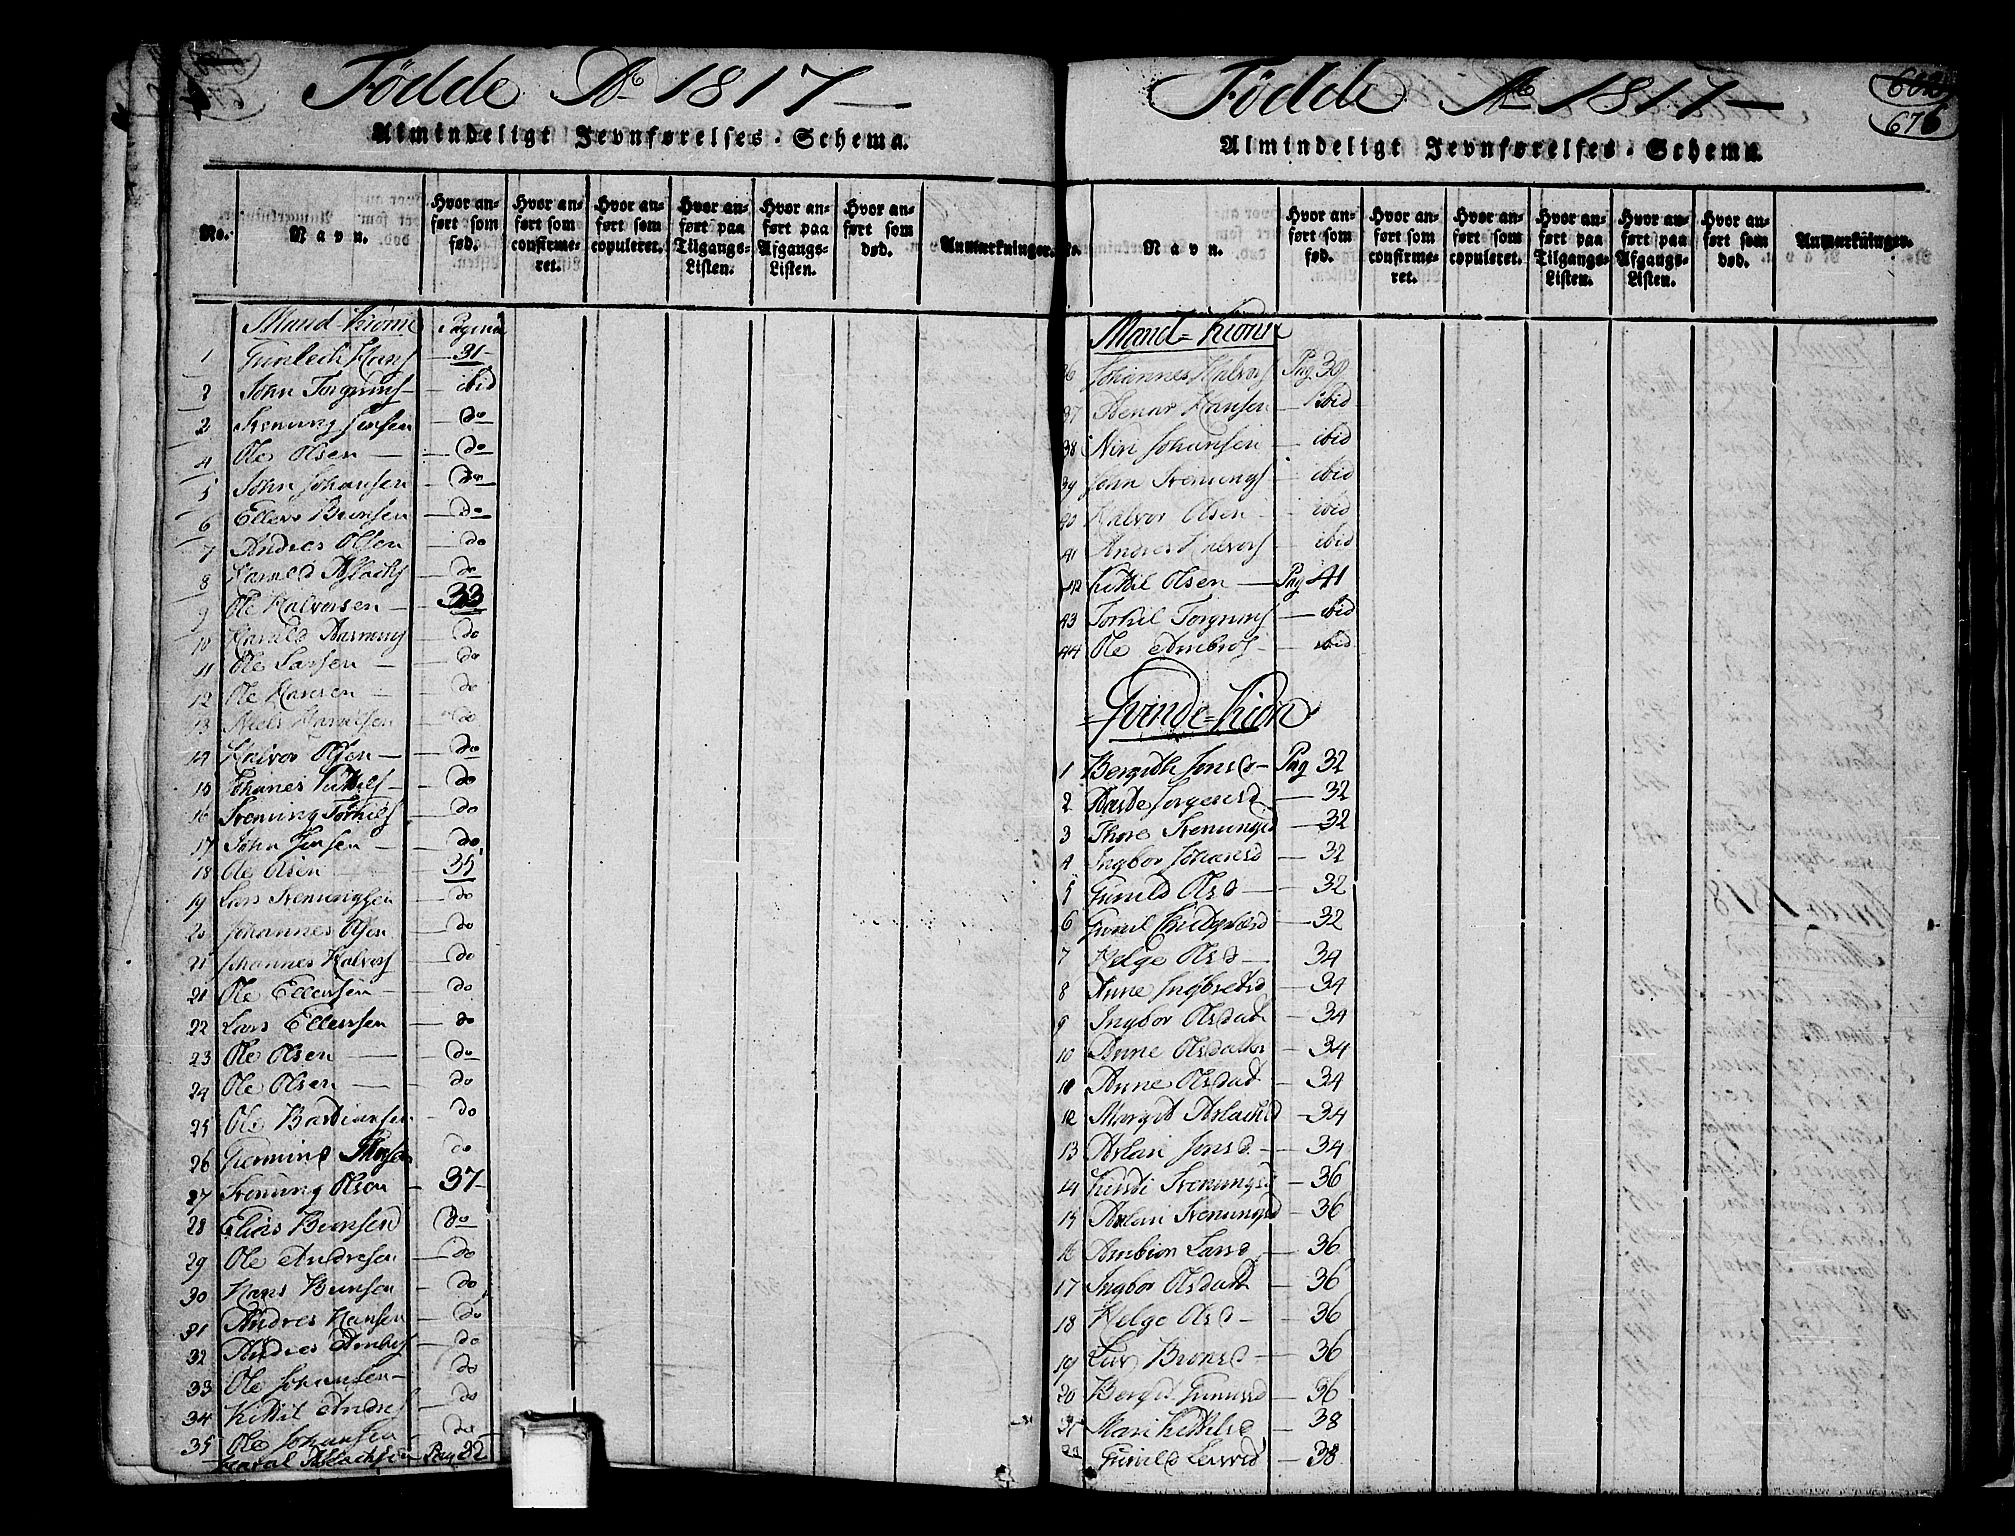 Födde Ao 1817
Almindeligt Jevnførelses-Schema.
No.
Navn.
Hvor anført som fød.
Hvor anført som confirmeret.
Hvor anført som copuleret.
Hvor anført paa Tilgangs-Listen.
Hvor anført paa Afgangs-Listen.
Hvor anført som død.
Anmærkninger.
Mand-Kiønn Pagina
1 Gunleik Hans 31
2 John Torgrims ibid
3 Svenung Jensen do
4 Ole Olsen do
5 John Johansen do
6 Ellev Bunsen do
7 Andres Olsen do
8 Harald Aslachs do
9 Ole Halvorsen 33
10 Harald do
11 Ole Larsen do
12 Ole Hansen do
13 Niels do
14 Halvor Olsen do
15 Johanes Kittils do
16 Svenung Torkils do
17 John Jensen do
18 Ole Olsen 35
19 Lars Svenungsen do
20 Johannes Olsen do
21 Johannes Halvors do
21 Ole Ellevsen do
22 Lars Ellevsen do
23 Ole Olsen do
24 Ole Olsen do
25 Ole Bastiansen do
26 do
27 Svenung Olsen 37
28 Elias Bunsen do
29 Ole Andresen do
30 Hans Bunsen do
31 Andres Hansen do
32 Andres Ambrs do
33 Ole Johansen do
34 Kittil Andres do
35 Ole Johansen do
Haral Aslachsen Pag 32
Födde Ao 1817
602
676
Almindeligt Jevnførelses-Schema.
No.
Navn.
Hvor anført som fød.
Hvor anført som confirmeret.
Hvor anført som copuleret.
Hvor anført paa Tilgangs-Listen.
Hvor anført paa Afgangs-Listen.
Hvor anført som død.
Anmærkninger.
Mand-Kiønn
36 Johannes Halvors Pag 39
37 Hansen ibid
38 Johansen ibid
39 John Svenungs ibid
40 Halvor Olsen ibid
41 Andres Halvors ibid
42 Kittil Olsen Pag 41
43 Torkil Torgrims ibid
44 Ole Ambros ibid
Qvinde-Kiøn
1 Bergith Jonsd Pag 32
2 Aaste Jorgensd 32
3 Thore Svenungsd 32
4 Ingbor Johansd 32
5 Gunild Olsd 32
6 Gunil 32
7 Helge Olsd 34
8 Anne Ingbretsd 34
9 Ingbor Olsdatt 34
10 Anne Olsdatter 34
11 Anne Olsdatt 34
12 Margit Aslachsd 34
13 Aslau Jonsd 34
14 Kirsti Svenungsd 36
15 Aslau Svenungsd 36
16 Ambior Larsd 36
17 Ingbor Olsdatt 36
18 Helge Olsd 36
19 Liv Bronsd 36
20 Bergit Gunulsd 36
21 Mari Kittelsd 38
22 Gunild 38